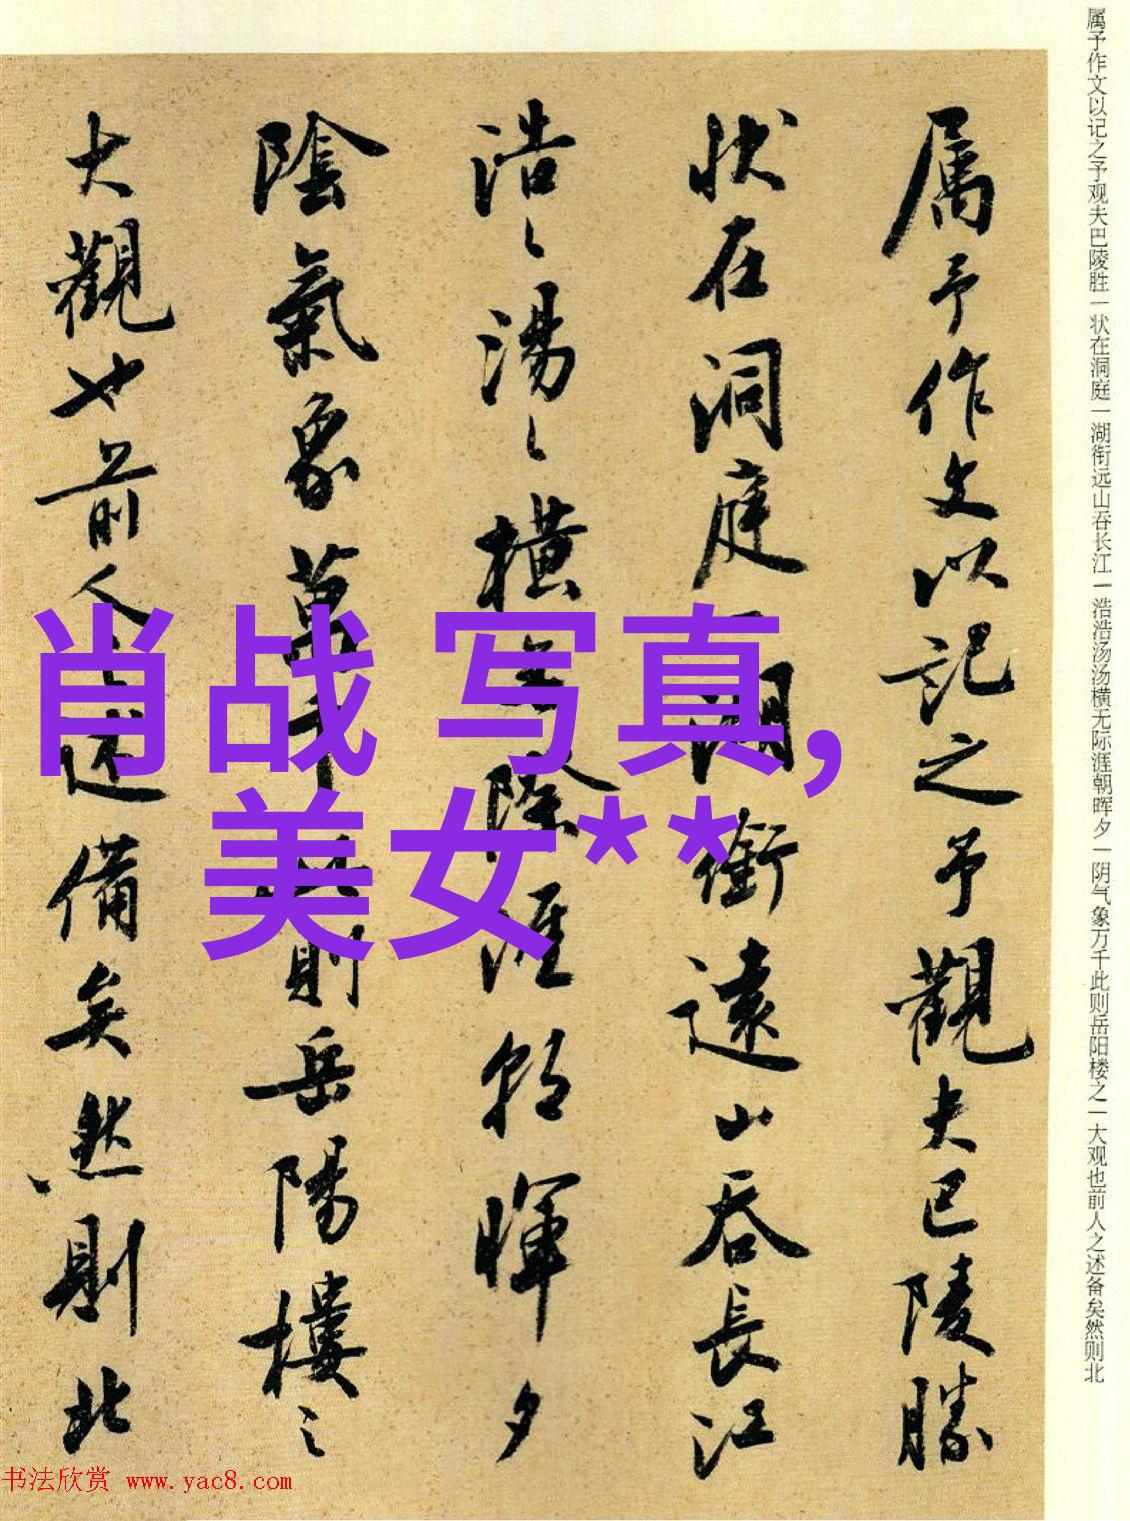 属予作文以记之予观夫巴陵胜|状在洞庭一湖衔远山吞长江|浩浩汤汤横无际涯朝晖夕|阴气象万千此则岳阳楼之|大观也前人之述备矣然则北
属予作文以記之予觀夫巴陵勝
狀在洞庭一湖銜遠山吞長江
浩〻湯〻橫無際涯朝暉夕
陰氣象萬千此則岳陽樓之
大觀也前人之述備矣然則北
肖战 写真,
美女**
书法欣赏 www.yac8.com